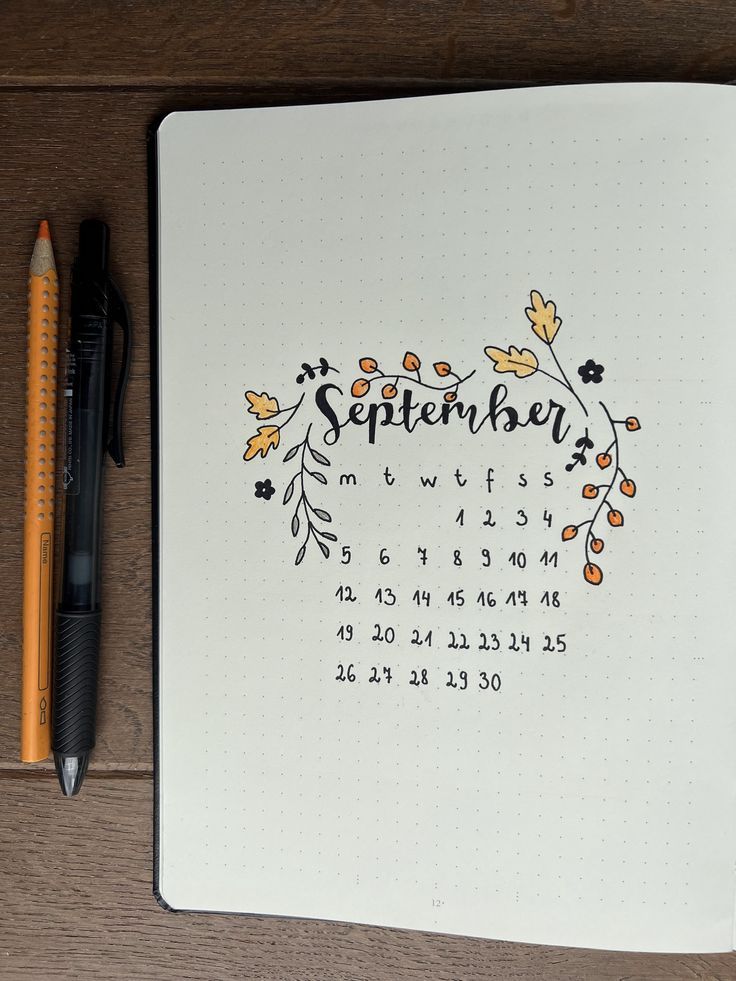 September
m t w t f s s
1 2 3 4
5 6 7 8 9 10 11
12 13 14 15 16 17 18
19 20 21 22 23 24 25
26 27 28 29 30
Name
12